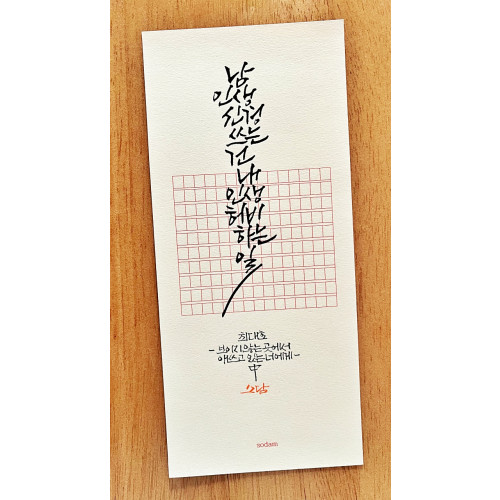 남
인생
신경
쓰는
건
내
인생
허비
하는
일
최대호
- 보이지 않는 곳에서
애쓰고 있는 너에게 -
中
소담
sodam